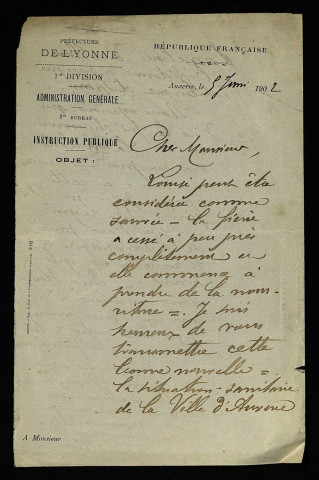 PRÉFECTURE
DE L'YONNE
RÉPUBLIQUE FRANÇAISE
1re DIVISION
Auxerre, le 5 Juin 1902
ADMINISTRATION GÉNÉRALE
BUREAU
INSTRUCTION PUBLIQUE
OBJET :
Cher Monsieur,
Louise peut être
considérée comme
sauvée – la fièvre
a cessé à peu près
complètement et
elle commence à
prendre de la nour-
riture =. Je suis
heureux de vous
transmettre cette
bonne nouvelle =
la situation sanitaire
de la Ville d'Auxerre
A Monsieur